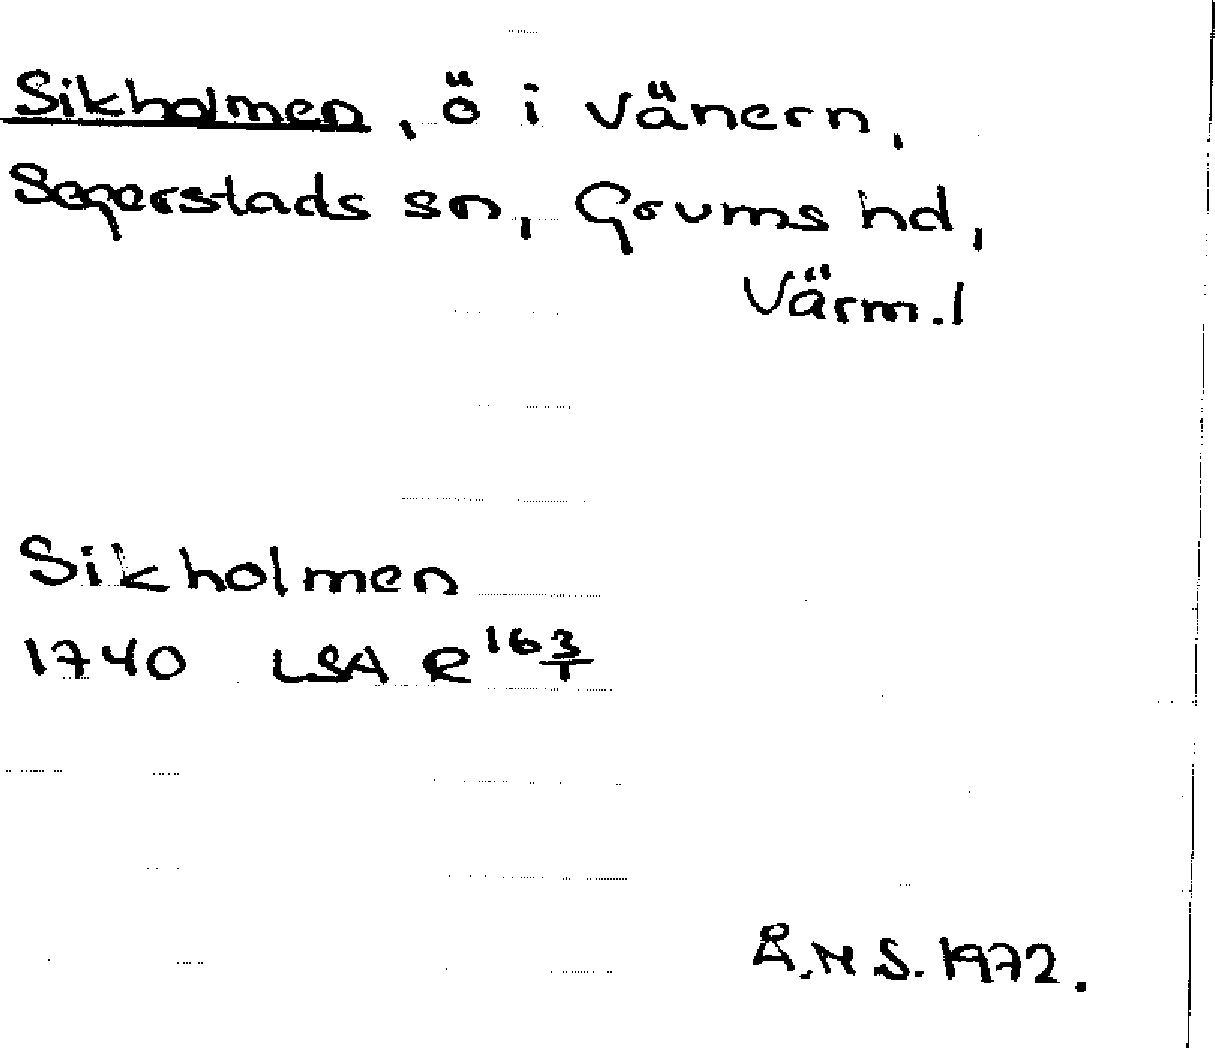 Sikholmen, ö i Vänern,
Segerstads sn, Grums hd,
Värm.l
Sikholmen
1740 LSA R 163/1
Å.N S. 1972.